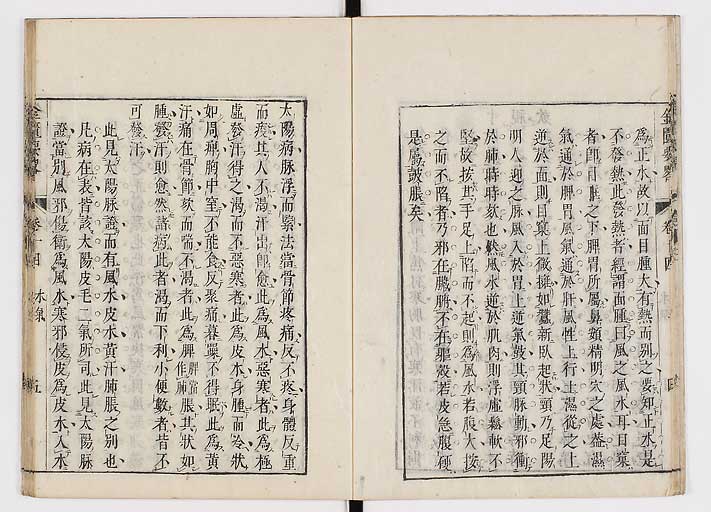 為正水故以面目腫大有熱而別之要知正水是
不發熱此發熱者經謂面腫曰風之風水耳目窠
者即目胞之下脾胃所屬鼻頞精明穴之處蓋濕
氣通於脾胃風氣通於肝風性上行土濕從之上
逆於面則目窠上微擁如蠶新臥起狀頸乃足陽
明人迎之脉風入於胃上逆氣鼓其頸脉動邪衝
於肺時時欬也然風水逆於肌肉則浮虛鬆軟不
堅故按其手足上陷而不起則為風水若腹大按
之而不陷者乃邪在臟腑不在軀殼若皮急腹硬
是屬鼓脹矣
太陽病脉浮而緊法當骨節疼痛反不疼身體反重
而痠其人不渴汗出即愈此為風水惡寒者此為極
虛發汗得之渴而不惡寒者此為皮水身腫而冷狀
如周痹胸中窒不能食反聚痛暮躁不得眠此為黃
汗痛在骨節欬而喘不渴者此為脾脹其狀如
腫發汗則愈然諸病此者渴而下利小便數者皆不
可發汗
此見太陽脉證而有風水皮水黃汗肺脹之別也
凡病在表皆該太陽皮毛二氣所司此見太陽脉
證當別風邪傷衛為風水寒邪侵皮為皮水入水
卷十四 水病 五